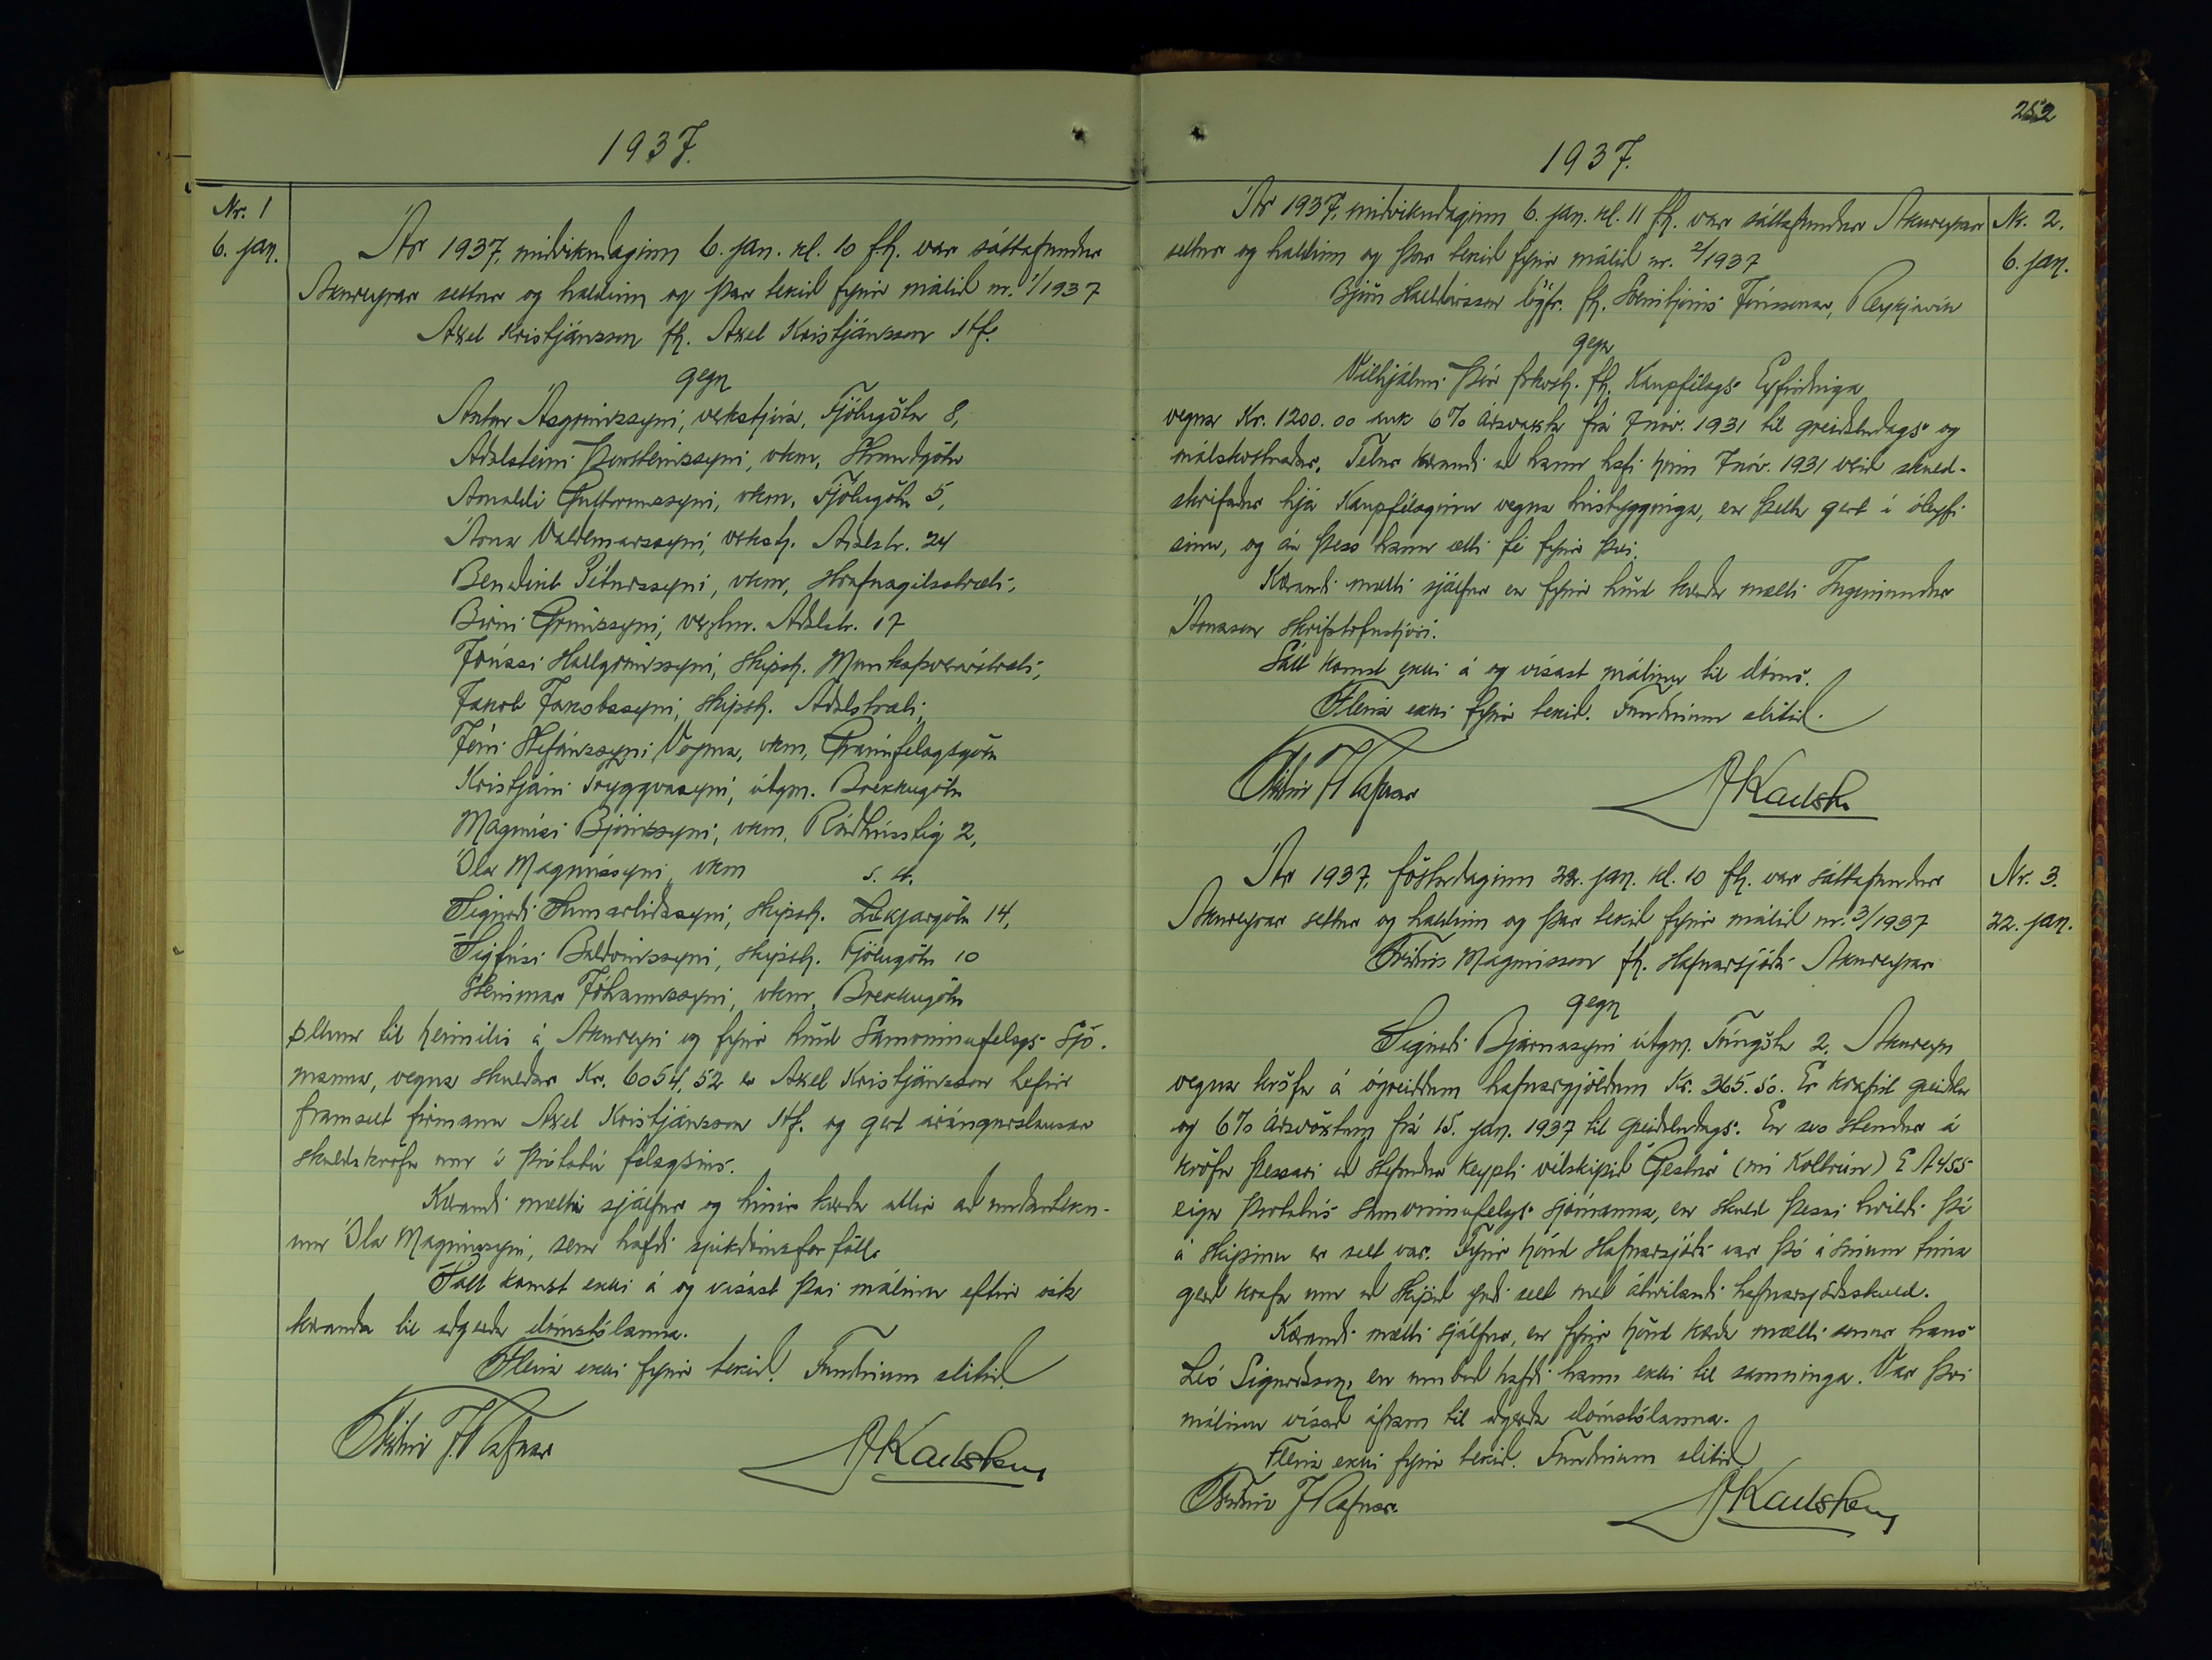 1937.
Nr. 1
6. jan.
Ár 1937, miðvikudaginn 6. jan. kl. 10 f.h. var sáttafundur
Akureyrar settur og haldinn og þar tekið fyrir málið nr. 1/1937
Axel Kristjánsson fh. Axel Kristjánsson Hf.
gegn
Antoni Ásgrímssyni, verkstjóra, Fjólugötu 8,
Aðalsteini Þorsteinssyni, vkm, Strandgötu
Arnaldi Guttormssyni, vkm, Fjólugötu 5,
Valdemarssyni, Aðalstr. 24
Benedikt Péturssyni, vkm, Hrafnagilsstræti,
Birni Grímssyni, verzlm. Aðalstr. 17
Hallgrímssyni, skipstj. Munkaþverárstræti,
Jakob Jakobssyni, skipstj. Aðalstræti,
Jóni Stefánssyni Vopna, vkm, Gránufélagsgötu
Kristjáni Tryggvasyni, útgm. Brekkugötu
Magnúsi Björnssyni, vkm, Ráðhússtíg 2,
Óla Magnússyni, vkm s. st.
Sigurði Sumarliðasyni, skipstj. Lækjargötu 14,
Sigfúsi Baldvinssyni, skipstj. Fjólugötu 10
Steinmar Jóhannssyni, vkm, Brekkugötu
öllum til heimilis á Akureyri og fyrir hönd Samvinnufélags Sjó-
manna, vegna skuldar Kr. 6054,52 er Axel Kristjánsson hefir
framselt firmanu Axel Kristjánsson Hf. og gert árangurslausar
skuldakröfur um í þrotabú félagsins.
Kærandi mætti sjálfur og hinir kærðu allir að undantekn-
um Óla Magnússyni, sem hafði sjúkdómsforföll.
Sátt komst ekki á og vísast því málinu eftir ósk
kæranda til aðgerða dómstólanna.
Fleira ekki fyrir tekið. Fundinum slitið.
Friðrik J. Rafnar
A Karlsson
252
1937.
Ár 1937, miðvikudaginn 6. jan. kl. 11 fh. var sáttafundur Akureyrar
Nr. 2.
settur og haldinn og þar tekið fyrir málið nr. 2/1937
6. jan.
Björn Halldórsson lögfr. fh. Steingríms Jónssonar, Reykjavík
gegn
Vilhjálmi Þór frkvstj. fh. Kaupfélags Eyfirðinga
vegna Kr. 1200.00 auk 6% ársvaxta frá 7 nóv. 1931 til greiðsludags og
málskostnaðar. Telur kærandi að hann hafi hinn 7 nóv. 1931 verið skuld-
skrifaður hjá Kaupfélaginu vegna húsbyggingar, en þetta gert í óleyfi
sínu, og án þess hann ætti fé fyrir því.
Kærandi mætti sjálfur en fyrir hönd kærða mætti Ingimundur
Árnason skrifstofustjóri.
Sátt komst ekki á og vísast málinu til dóms.
Fleira ekki fyrir tekið. Fundinum slitið.
Friðrik J Rafnar
A Karlss
Ár 1937, föstudaginn 22. jan. kl. 10 fh. var sáttafundur
Nr. 3.
Akureyrar settur og haldinn og þar tekið fyrir málið nr. 3/1937
22. jan.
Magnússon fh. Hafnarsjóðs Akureyrar
gegn
Sigurði Bjarnasyni útgm. Túngötu 2, Akureyri
vegna kröfu á ógreiddum hafnargjöldum Kr. 365.50. Er krafist greiðslu
og 6% ársvöxtum frá 15. jan. 1937 til greiðsludags. En svo stendur á
kröfu þessari að stefndur keypti vélskipið Gestur (nú Kolbrún) E A 455
eign þrotabús Samvinnufélags sjómanna, en skuld þessi hvíldi þá
á skipinu er selt var. Fyrir hönd Hafnarsjóðs var þó á sínum tíma
gerð krafa um að skipið yrði selt með áhvílandi hafnarsjóðsskuld.
Kærandi mætti sjálfur, en fyrir hönd kærða mætti sonur hans
Leó Sigurðsson, en umboð hafði hann ekki til samninga. Var því
málinu vísað áfram til aðgerða dómstólanna.
Fleira ekki fyrir tekið. Fundinum slitið.
Friðrik J Rafnar.
A Karlsson